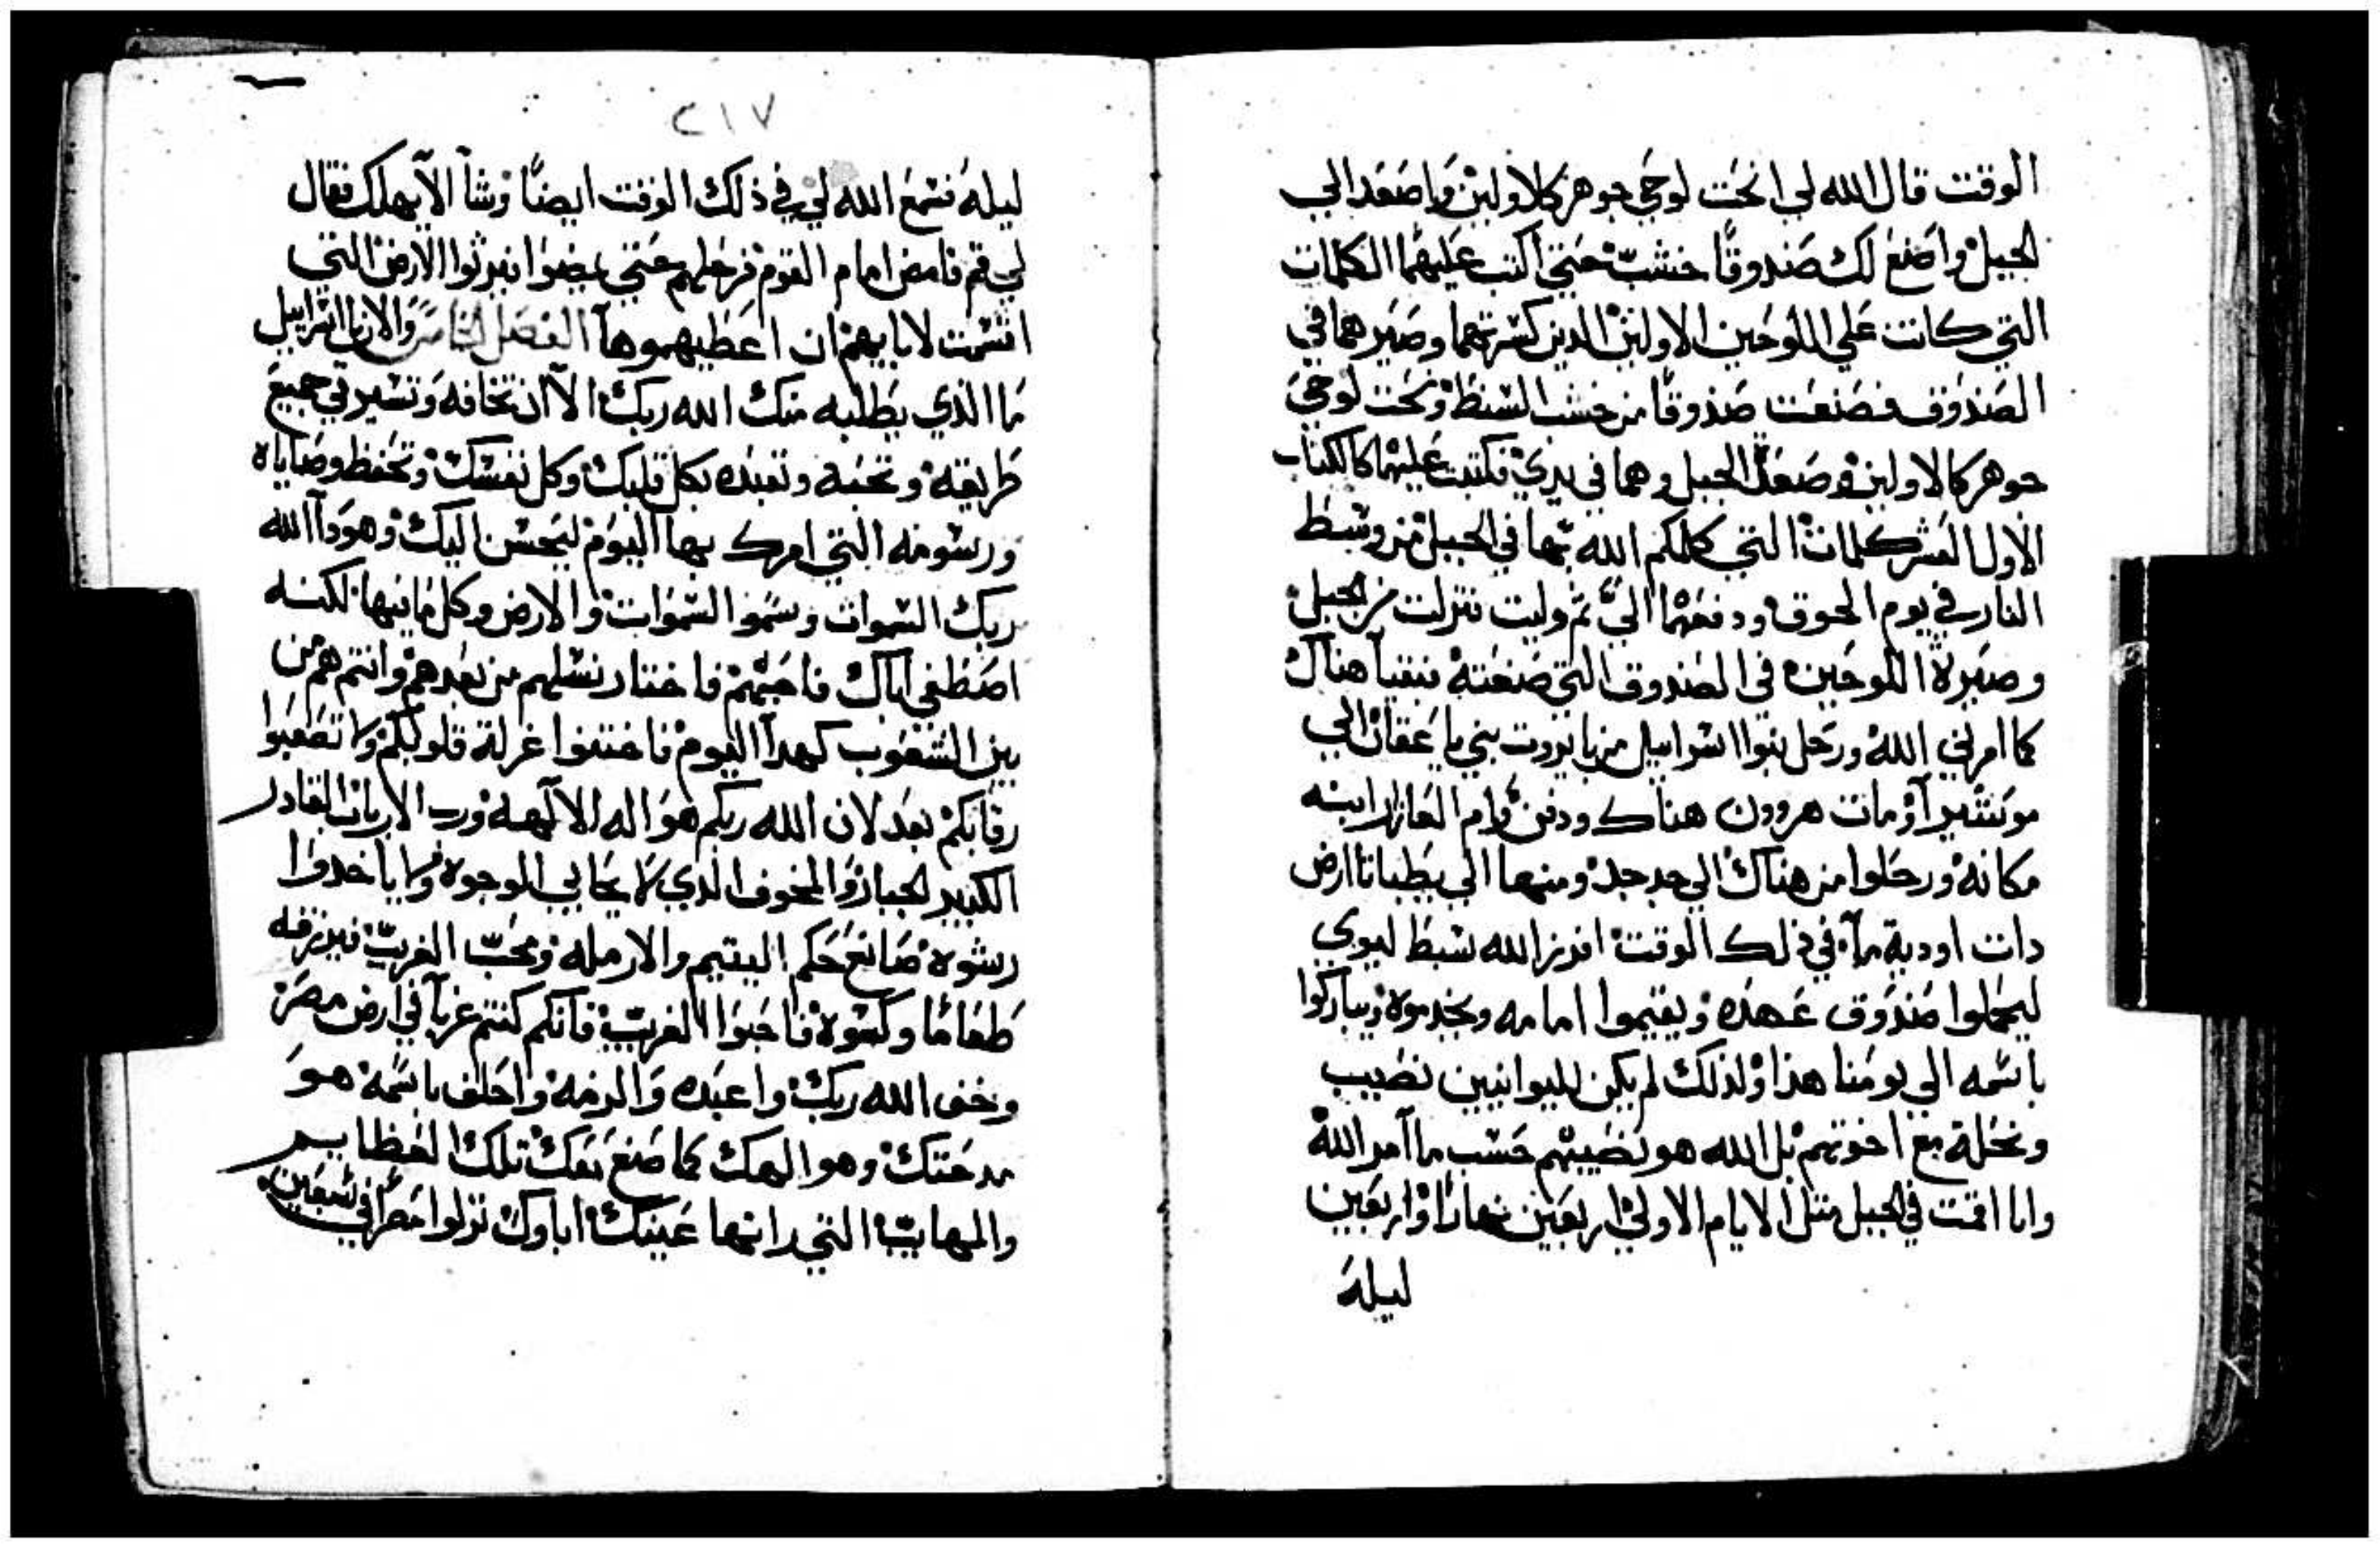 الوقت قال الله لي انحت لوحي جوهر كالاولين واصعد الي
الجبل واصنع لك صندوقا خشب حتي اكتب عليهما الكلمات
التي كانت علي اللوحين الاولين الدين كسرتهما وصيرهما في
الصندوق فصنعت صندوقا من خشب السنط ونحت لوحي
جوهر كالاولين وصعدت الجبل وهما في يدي فكتب عليهما كالكتاب
الاول العشر كلمات التي كلمكم الله بها في الجبل من وسط
النار في يوم الجوق ودفعهما الي ثم وليت نزلت من الجبل
وصيرة اللوحين في الصندوق التي صنعته فبقيا هناك
كما امرني الله ورحل بنوا اسراييل من باروت بني ياعقان الي
موسيرا ومات هرون هناك ودفن وام العازار ابنه
مكانه ورحلوا من هناك الي جدجد ومنها الي يطباتا ارض
دات اودية مآ في ذلك الوقت افرز الله سبط ليوي
ليحملوا صندوق عهده ويقيموا امامه ويخدموه ويباركوا
باسمه الي يومنا هذا ولذلك لم يكن لليوانيين نصيب
ونحلة مع اخوتهم بل الله هو نصيبهم حسب ما آمر الله
وانا اقمت في الجبل متل الايام الاولي اربعين نهارا واربعين
ليلة
٢١٧
ليلة فسمع الله لي في ذلك الوقت ايضا وشآ الا يهلك فقال
لي قم فامض امام القوم فرحلهم حتي يمضوا فيرثوا الارض التي
اقسمت لابايهم ان اعطيهموها الفصل الخامس والان يا اسراييل
ما الذي يطلبه منك الله ربك الا ان تخافه وتسير في جميع
طريقه وتحبه وتعبده بكل قلبك وكل نفسك وتحفظ وصاياه
ورسومه التي امرك بها اليوم ليحسن اليك وهودا الله
ربك السموات وسموا السموات والارض وكل ما فيها لكنه
اصطفي اباك فاحبهم فاختار نسلهم من بعدهم وانتم هم من
بين الشعوب كهدا اليوم فاختنوا غرلة قلوبكم ولا تصعبوا
رقابكم بعد لان الله ربكم هو اله الالهه ورب الارباب القادر
الكبير الجبار والمخوف الذي لا يحابي الوجوه ولا ياخدوا
رشوه صانع حكم اليتيم والارمله ومحب الغريب فيرزقه
طعاما وكسوة فاحبوا الغريب فانكم كنتم غربآ في ارض مصر
وخف الله ربك واعبده والزمه واحلف باسمه هو
مدحتك وهو الهك كما صنع معك تلك العظايم
والمهايب التي راتها عينك اباوك نزلوا مصر في سبعين